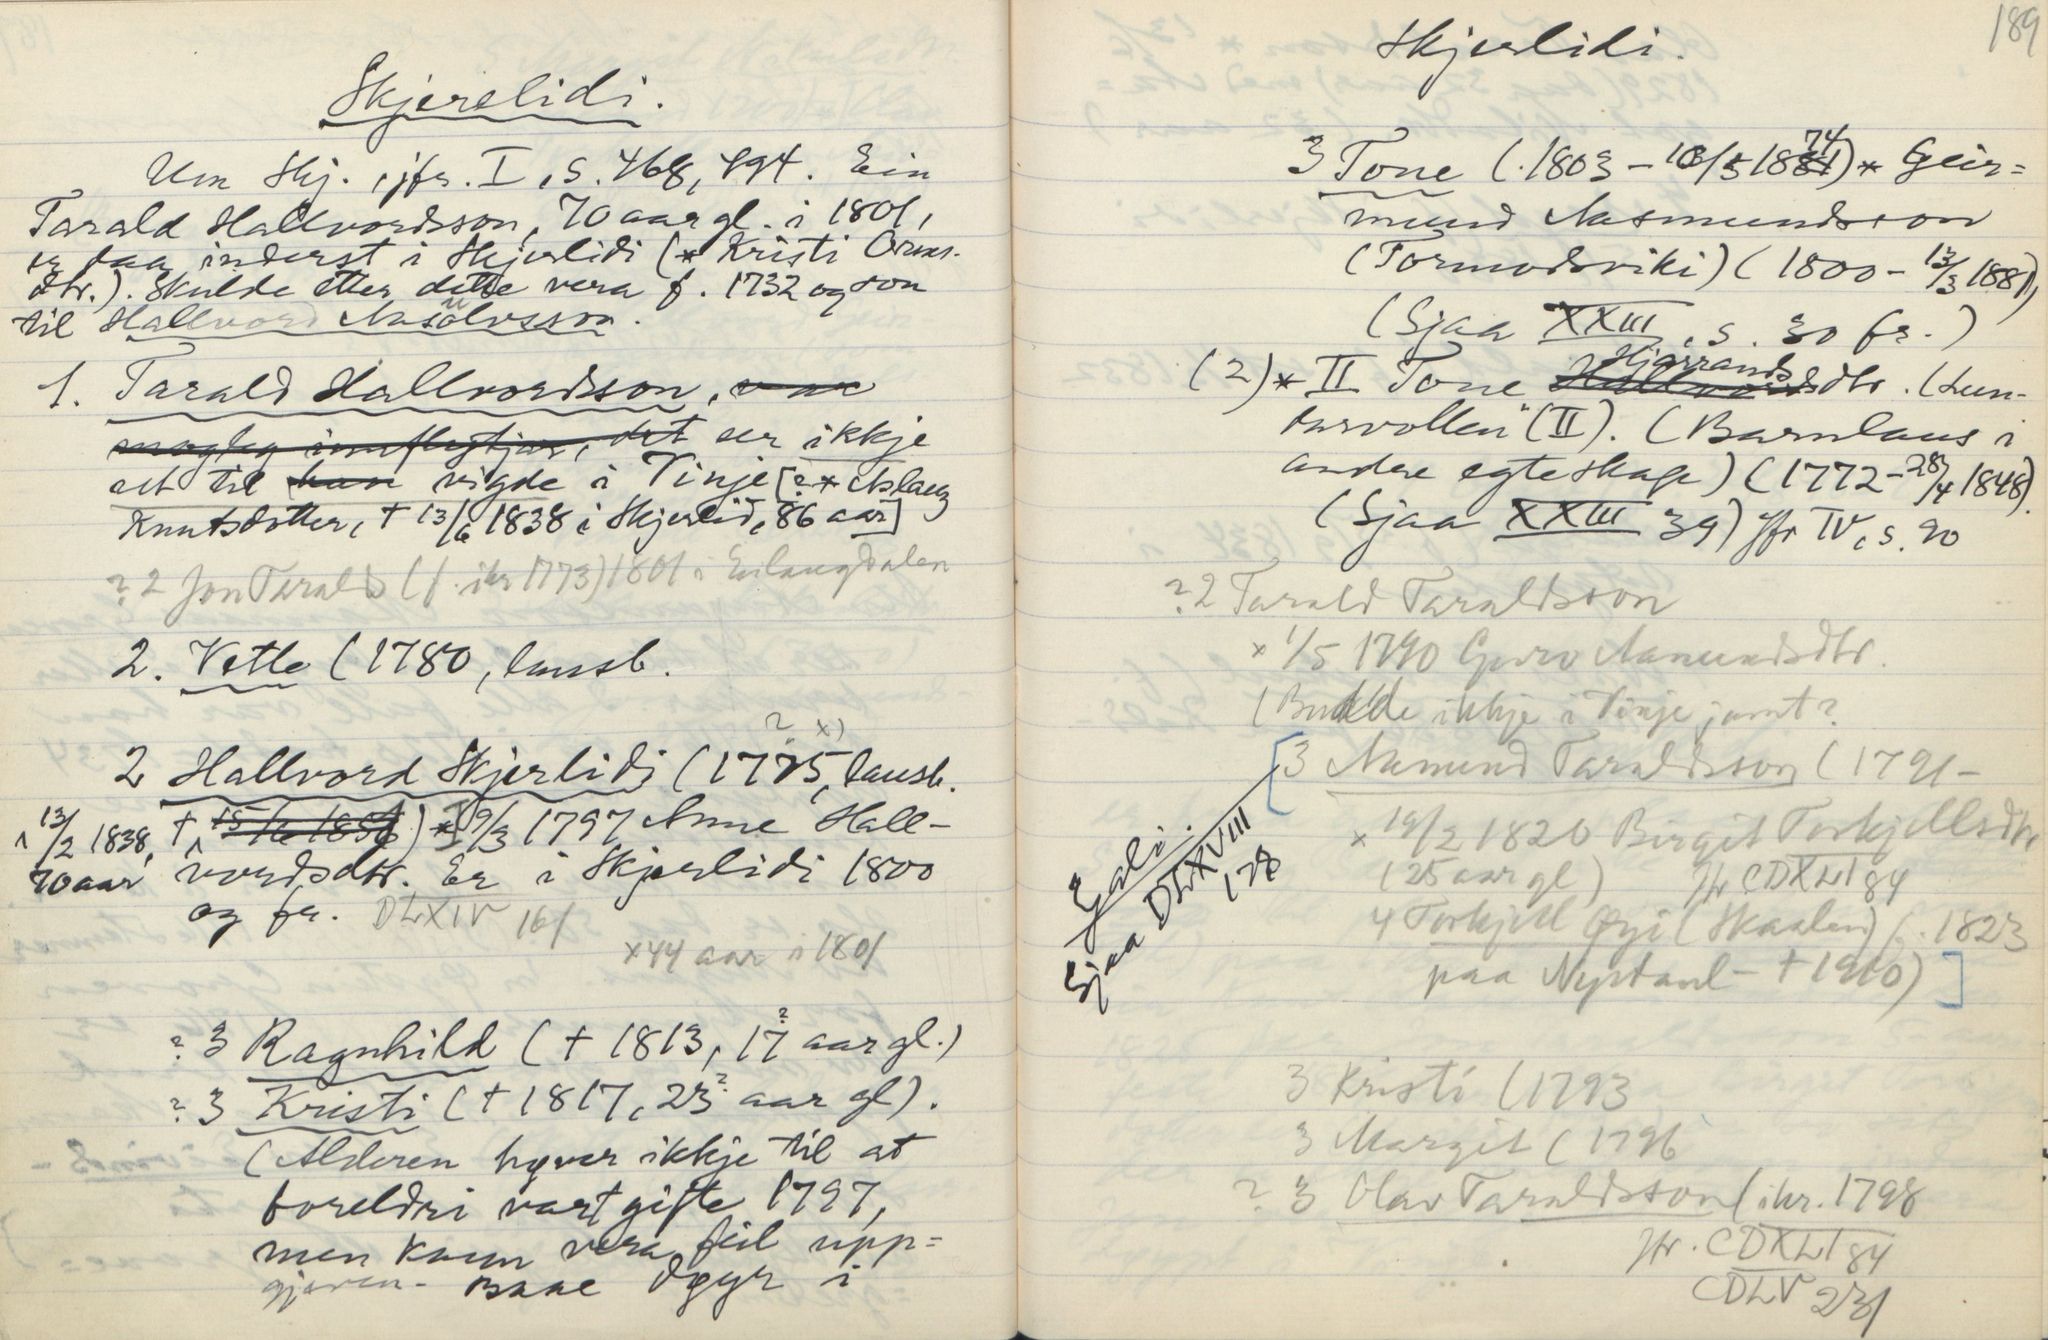 Skjerelidi.
Um Skj., jfr. I, S. 468, 494. Ein
Tarald Hallvordsson, 70 aar gl. i 1801,
er daa inderst i Skjerlidi (* Kristi Orms-
dtr.). Skulde etter dette vera f. 1732 og son
til Hallvord Aasulvsson.
1. Tarald Hallvordsson, var
mogleg innflytjar, det ser ikkje
ut til han vigde i Vinje [? * Aslaug
Knutsdotter, † 13/6 1838 i Skjerlid, 86 aar]
? 2 Jon Taralds (f. ikr 1773) 1801 i Eilaugdalen
2. Vetle (1780, lausb.
2 Hallvord Skjerlidi (1775, ? x) lausb.
13/2 1838, † 15/6 1856) * I 9/3 1797 Anne Hall-
70 aar vordsdtr. Er i Skjerlidi 1800
og fr. DLXIV 161
x 44 aar i 1801
? 3 Ragnhild († 1813, 17? aar gl.)
? 3 Kristi († 1817, 23? aar gl).
(Alderen høver ikkje til at
foreldri vart gifte 1797,
men kann vera feil upp-
gjeven. Baae døyr i
189
Skjerlidi.
3 Tone (. 1803 - 10/5 1881 74) * Geir-
mund Aasmundsson
(Tormodsviki) (1800 - 13/3 1881)
(Sjaa XXIII, s. 30 fr.)
(2) * II Tone Hallvords Hjorrands dtr. (Lun-
darvollen (II). (Barnlaus i
andre egteskap) (1772 - 28/4 1848).
(Sjaa XXIII 39) jfr IV, s. 90
? 2 Tarald Taraldsson
x 1/5 1790 Guro Aamundsdtr.
(Budde ikkje i Vinje jamt?
[3 Aamund Taraldsson (1791 -
x 19/2 1820 Birgit Torkjellsdtr
(25 aar gl) Jfr CDXLI 84
4 Torkjell Øyi (Skaalen) f. 1823
paa Nystaul - † 1910) ]
Gali.
Sjaa DLXVIII
178
3 Kristi (1793
3 Margit (1796
? 3 Olav Taraldsson (ikr. 1798
Jfr. CDXLI 84
CDLV 231